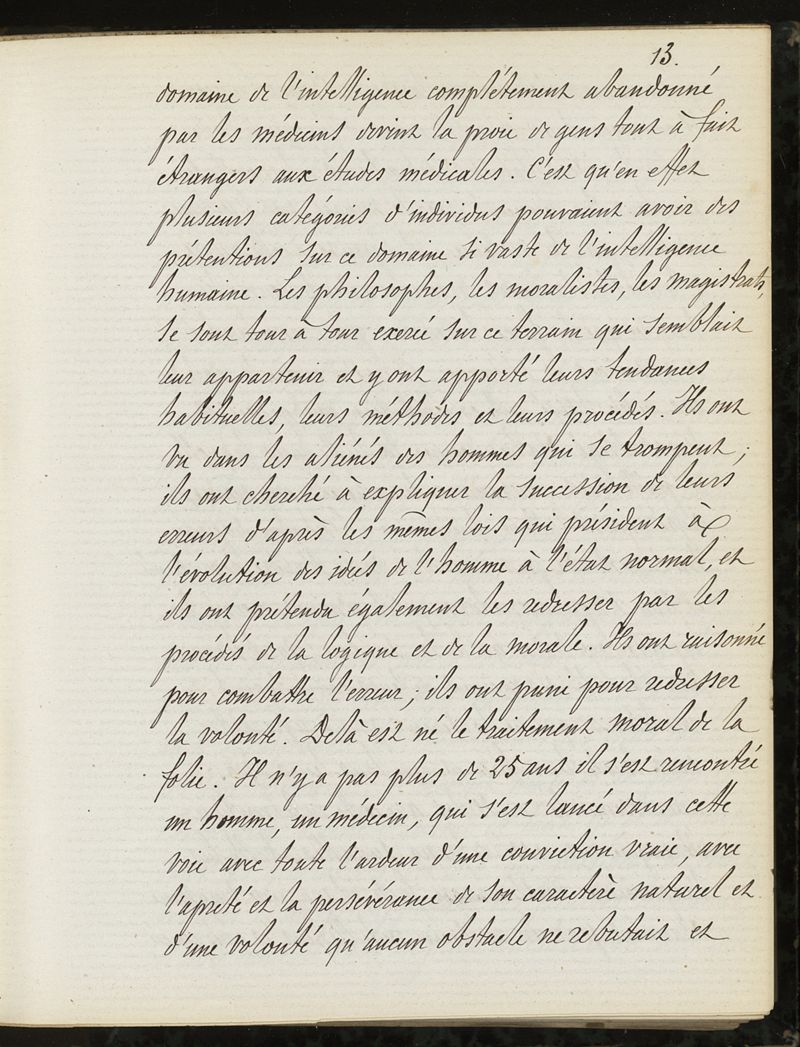 13.
domaine de l'intelligence complétement abandonné
par les médecins devint la proie de gens tout à fait
étrangers aux études médicales. C'est qu'en effet
plusieurs catégories d'individus pouvaient avoir des
prétentions sur ce domaine si vaste de l'intelligence
humaine. Les philosophes, les moralistes, les magistrats,
se sont tour à tour exercé sur ce terrain qui semblait
leur appartenir et y ont apporté leurs tendances
habituelles, leurs méthodes et leurs procédés. Ils ont
vu dans les aliénés des hommes qui se trompent ;
ils ont cherché à expliquer la succession de leurs
erreurs d'après les mêmes lois qui président à
l'évolution des idées de l'homme à l'état normal, et
ils ont prétendu également les redresser par les
procédés de la logique et de la morale. Ils ont raisonné
pour combattre l'erreur ; ils ont puni pour redresser
la volonté. Delà est né le traitement moral de la
folie. Il n'y a pas plus de 25 ans il s'est rencontré
un homme, un médecin, qui s'est lancé dans cette
voie avec toute l'ardeur d'une conviction vraie, avec
l'apreté et la persévérance de son caractère naturel et
d'une volonté qu'aucun obstacle ne rebutait et